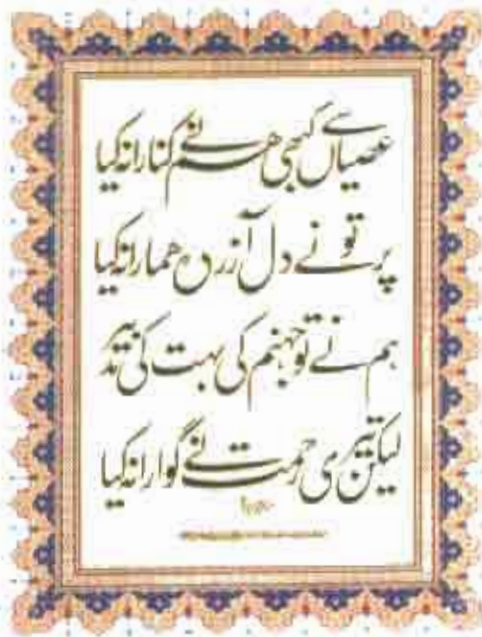 عصیاں سے کبھی ھم نے کنارا نہ کیا
پر تو نے دل آزردہ ھمارا نہ کیا
ہم نے تو جہنم کی بہت کی تدبیر
لیکن تیری رحمت نے گوارا نہ کیا